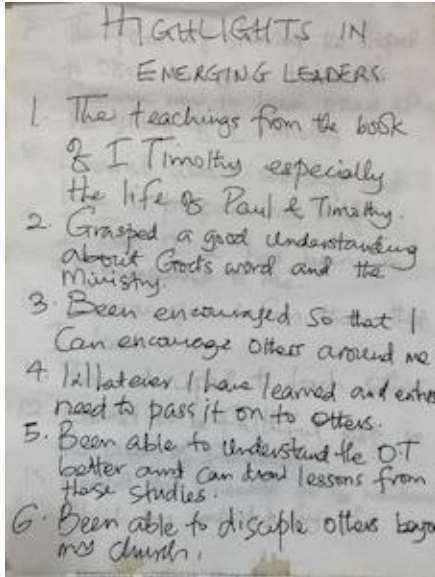 HIGHLIGHTS IN
EMERGING LEADERS.
1. The teachings from the book
of I Timothy especially
the life of Paul & Timothy.
2. Grasped a good understanding
about God's word and the
Ministry.
3. Been encouraged so that I
Can encourage others around me
4. Whatever I have learned and
need to pass it on to others.
5. Been able to understand the OT
better and can draw lessons from
these studies.
6. Been able to disciple others
my church.